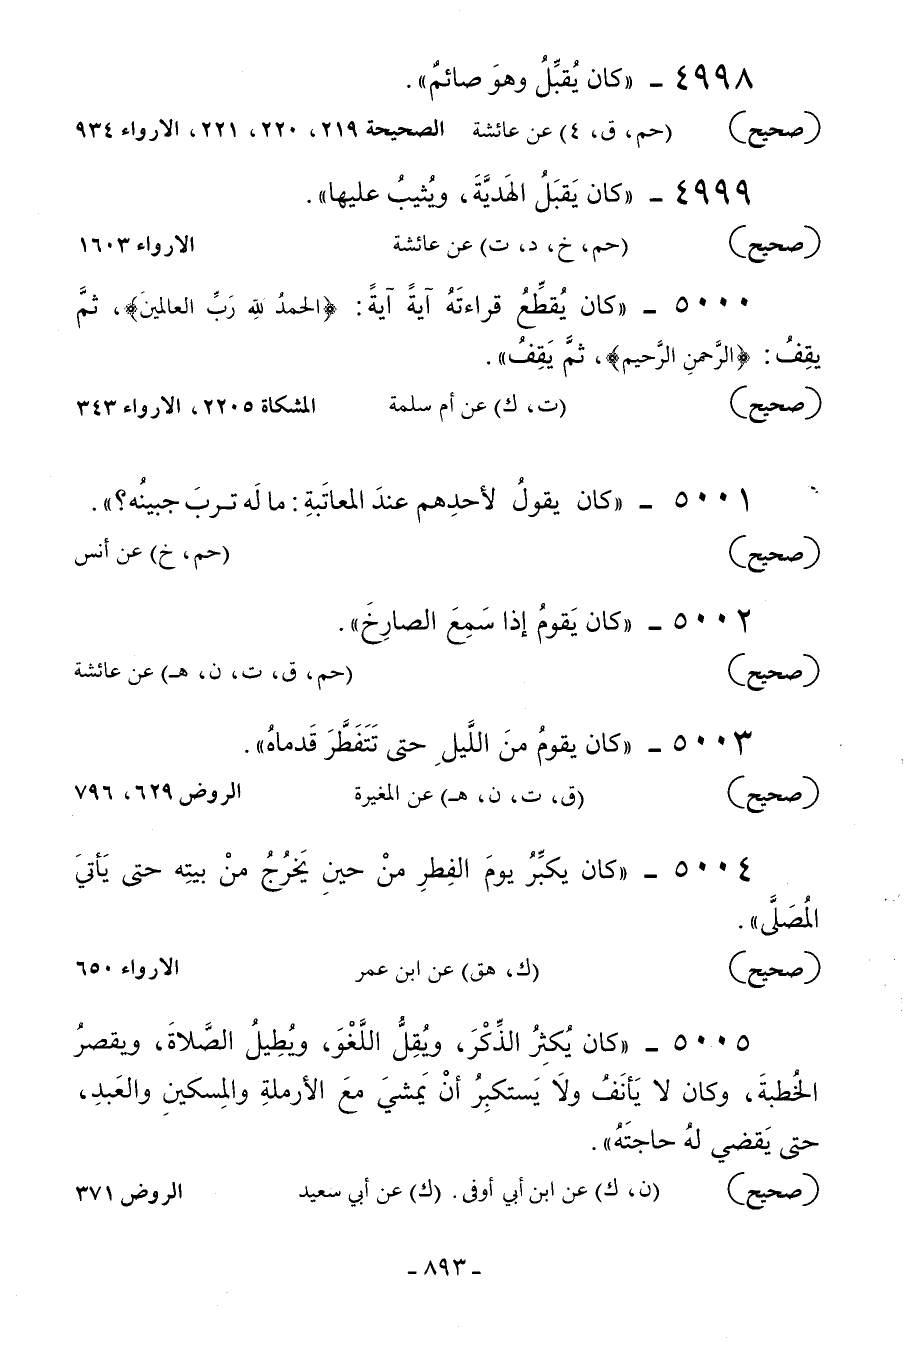 ٤٩٩٨ ـ «كان يُقبِّلُ وهوَ صائمٌ».
(صحيح) (حم، ق، ٤) عن عائشة الصحيحة ٢١٩، ٢٢٠، ٢٢١، الارواء ٩٣٤
٤٩٩٩ ـ «كان يَقبَلُ الهَديَّةَ، ويُثيبُ عليها».
(صحيح) (حم، خ، د، ت) عن عائشة الارواء ١٦٠٣
٥٠٠٠ ـ «كان يُقطِّعُ قراءتَهُ آيةً آيةً: ﴿الحمدُ للهِ رَبِّ العالمينَ﴾، ثمَّ
يقِفُ: ﴿الرَّحمنِ الرَّحيمِ﴾، ثمَّ يَقِفُ».
(صحيح) (ت، ك) عن أم سلمة المشكاة ٢٢٠٥، الارواء ٣٤٣
٥٠٠١ ـ «كان يقولُ لأحدِهم عندَ المعاتَبةِ: ما لَه تربَ جبينُه؟».
(صحيح) (حم، خ) عن أنس
٥٠٠٢ ـ «كان يَقومُ إذا سَمِعَ الصارِخَ».
(صحيح) (حم، ق، ت، ن، هـ) عن عائشة
٥٠٠٣ ـ «كان يقومُ منَ اللَّيلِ حتى تَتَفَطَّرَ قَدماهُ».
(صحيح) (ق، ت، ن، هـ) عن المغيرة الروض ٦٢٩، ٧٩٦
٥٠٠٤ ـ «كان يكبِّرُ يومَ الفِطرِ منْ حينِ يَخرُجُ منْ بيتِه حتى يَأتيَ
المُصَلَّى».
(صحيح) (ك، هق) عن ابن عمر الارواء ٦٥٠
٥٠٠٥ ـ «كان يُكثِرُ الذِّكْرَ، ويُقِلُّ اللَّغْوَ، ويُطيلُ الصَّلاةَ، ويقصرُ
الخُطبةَ، وكان لا يَأنَفُ ولاَ يَستكبِرُ أنْ يَمشيَ معَ الأرملةِ والمِسكينِ والعَبدِ،
حتى يَقضي لهُ حاجتَهُ».
(صحيح) (ن، ك) عن ابن أبي أوفى. (ك) عن أبي سعيد الروض ٣٧١
ـ ٨٩٣ ـ